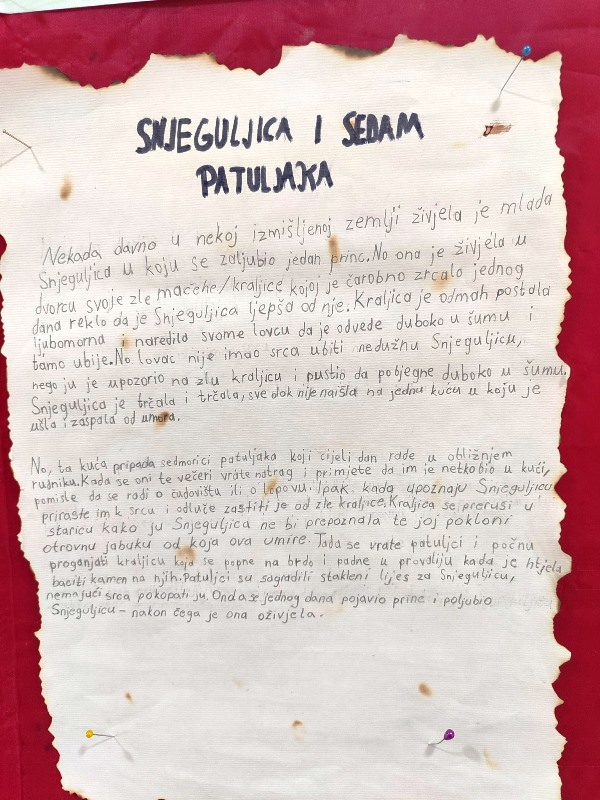 SNJEGULJICA I SEDAM
PATULJAKA
Nekada davno u nekoj izmišljenoj zemlji živjela je mlada
Snjeguljica u koju se zaljubio jedan princ. No ona je živjela u
dvorcu svoje zle maćehe/kraljice kojoj je čarobno zrcalo jednog
dana reklo da je Snjeguljica ljepša od nje. Kraljica je odmah postala
ljubomorna i naredila svome lovcu da je odvede duboko u šumu i
tamo ubije. No lovac nije imao srca ubiti nedužnu Snjeguljicu,
nego ju je upozorio na zlu kraljicu i pustio da pobjegne duboko u šumu.
Snjeguljica je trčala i trčala, sve dok nije naišla na jednu kuću u koju je
ušla i zaspala od umora.
No, ta kuća pripada sedmorici patuljaka koji cijeli dan rade u obližnjem
rudniku. Kada se oni te večeri vrate natrag i primjete da im je netko bio u kući,
pomisle da se radi o čudovištu ili o lopovu. Ipak kada upoznaju Snjeguljicu
priraste im k srcu i odluče zaštiti je od zle kraljice. Kraljica se preruši u
staricu kako ju Snjeguljica ne bi prepoznala te joj pokloni
otrovnu jabuku od koja ova umire. Tada se vrate patuljci i počnu
proganjati kraljicu koja se popne na brdo i padne u provaliju kada je htjela
baciti kamen na njih. Patuljci su sagradili stakleni lijes za Snjeguljicu,
nemajući srca pokopati ju. Onda se jednog dana pojavio princ i poljubio
Snjeguljicu – nakon čega je ona oživjela.